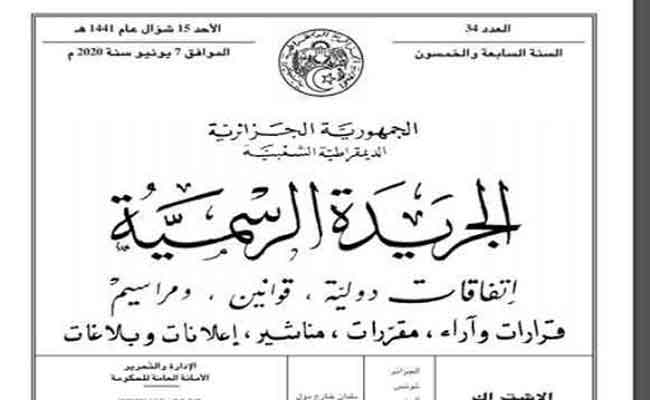 العدد 34
السنة السابعة والخمسون
الأحد 15 شوّال عام 1441 هـ
الموافق 7 يونيو سنة 2020 م
الجمهورية الجزائرية
الديمقراطية الشعبية
الجريدة الرسمية
إتفاقات دولية ، قوانين ، ومراسيم
قرارات وآراء ، مقررات ، مناشير ، إعلانات وبلاغات
الاشتراك
الجزائر
تونس
بلدان خارج دول
الإدارة والتحرير
الأمانة العامة للحكومة